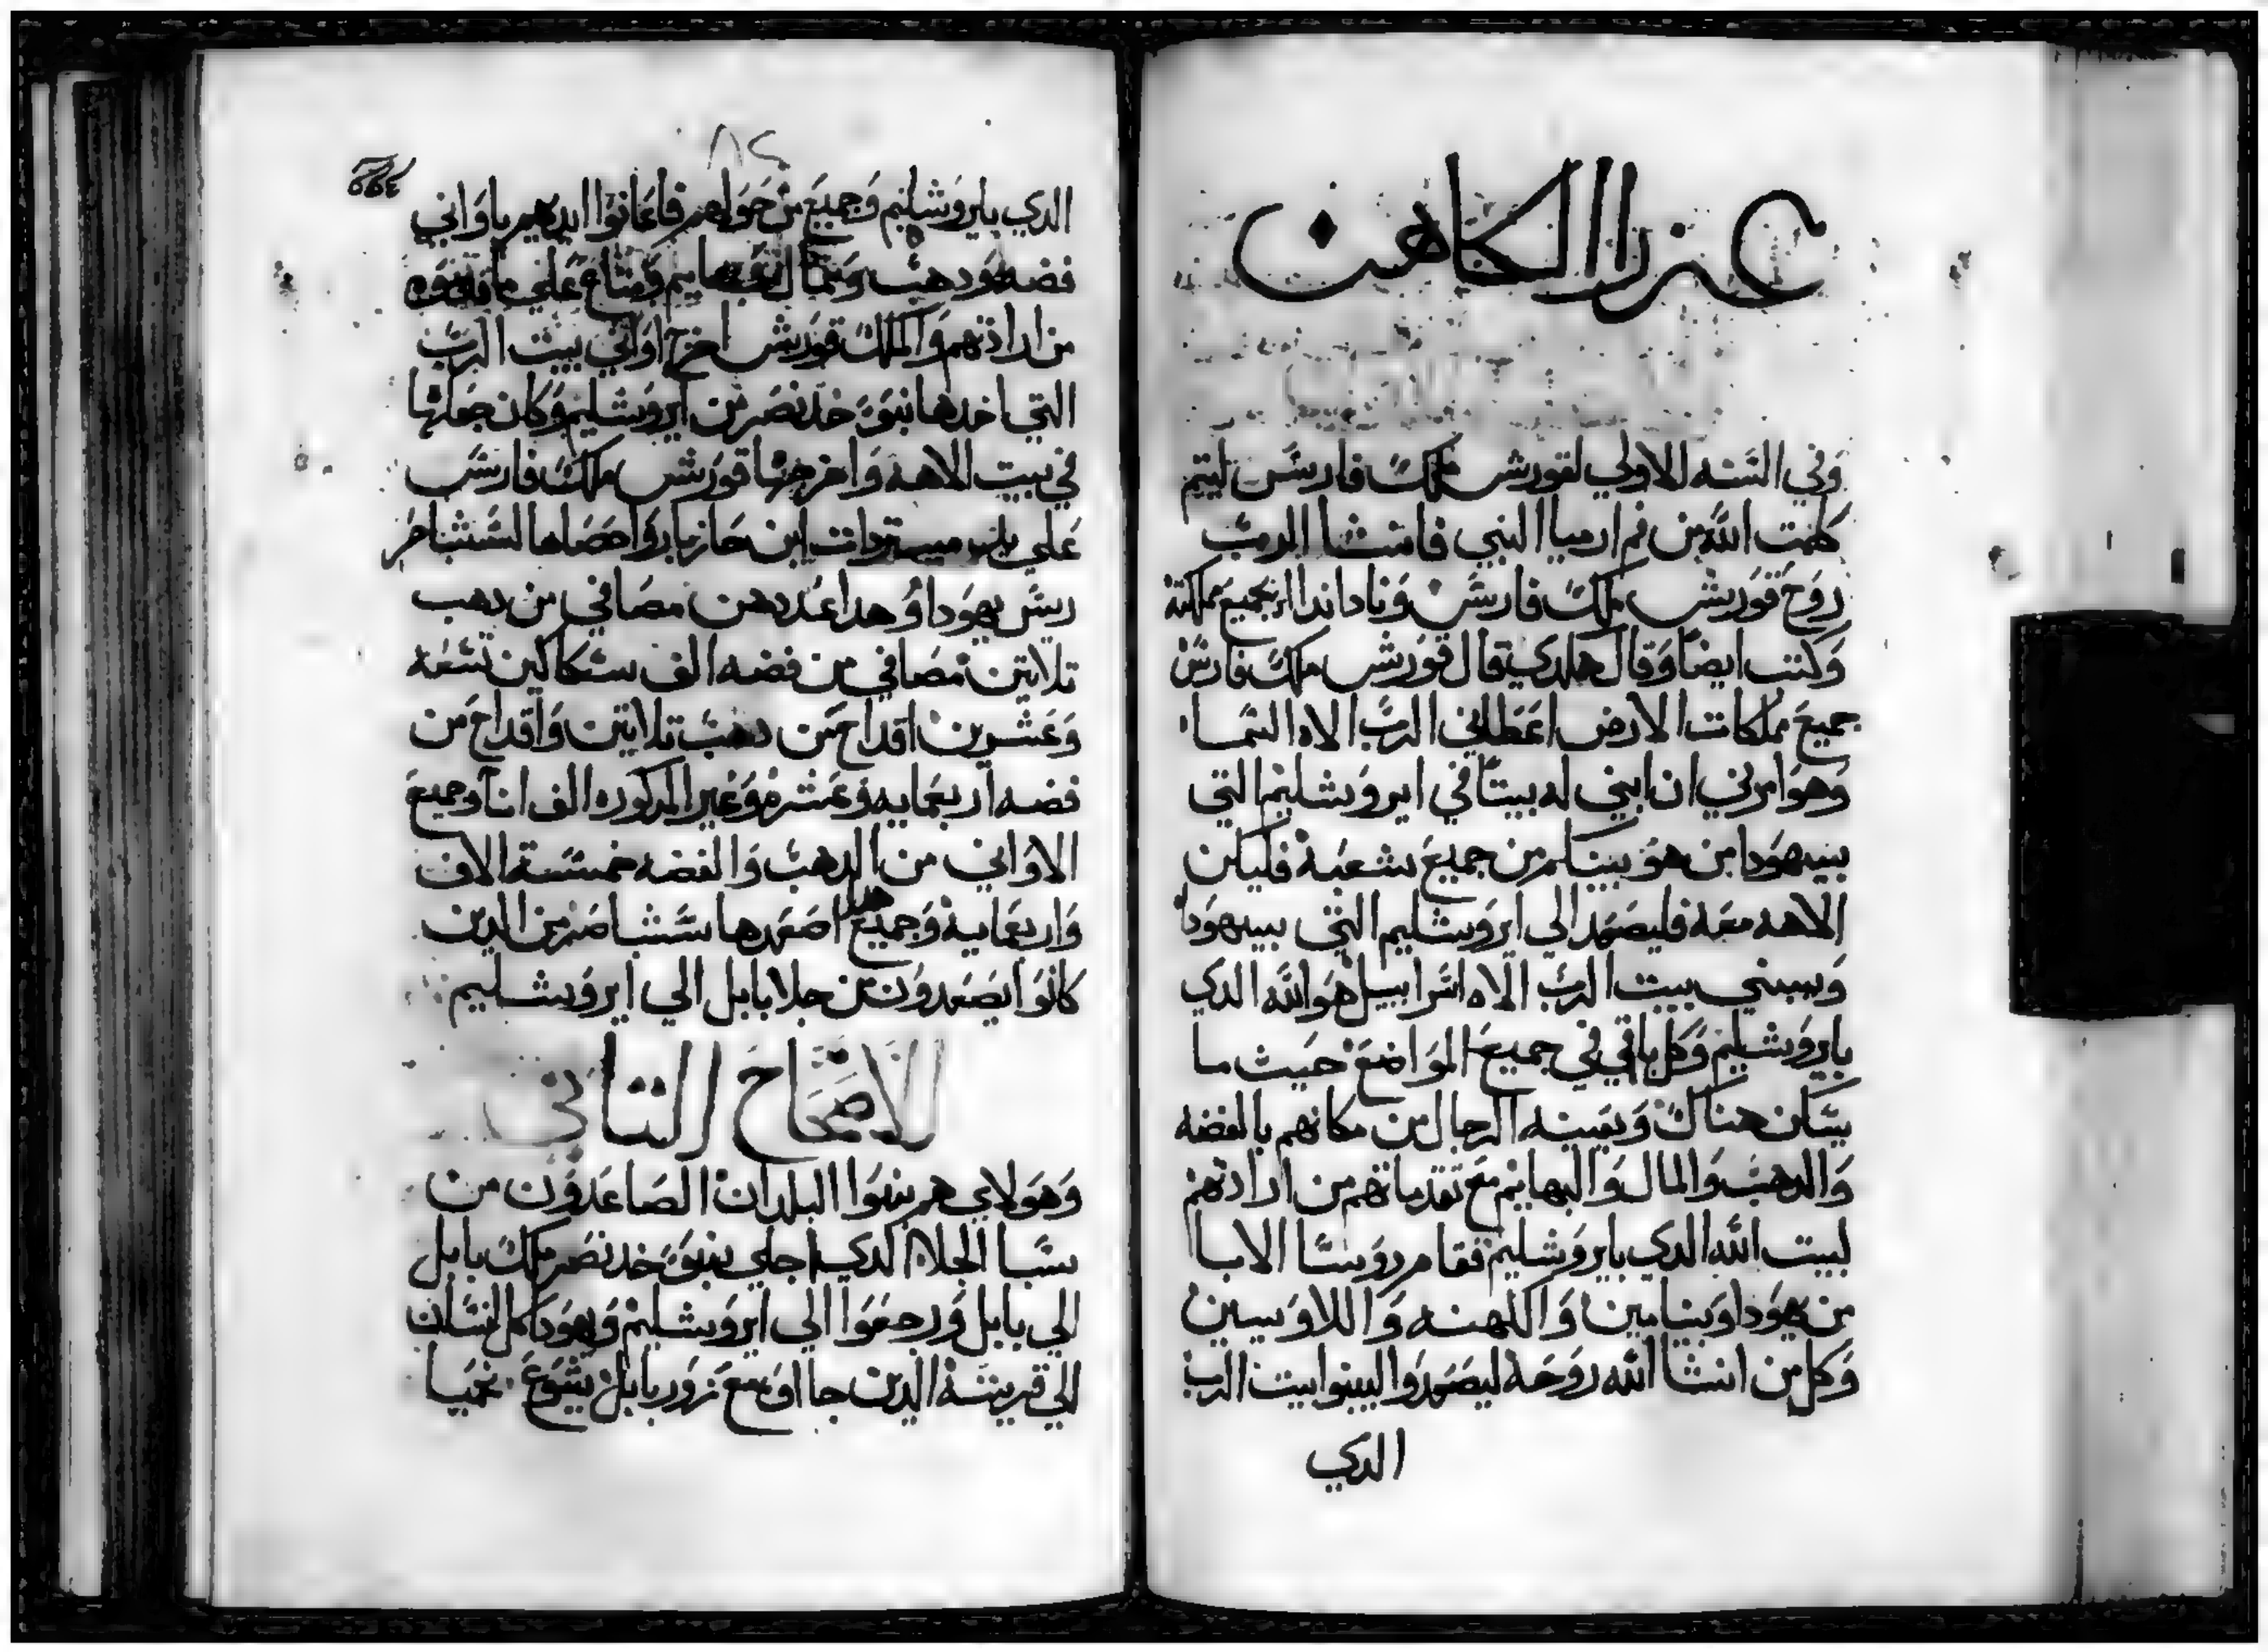 عزرا الكاهن
وَفي السَنه الاولي لقورش ملك فارسَ ليتم
كلمت اللَه من فم ارميا النبي فانشا الربَ
رَوحَ قَورَش ملك فارسَ وَنادا ندا الي جميعَ مملكته
وَكتب ايضاً وَقال هلدي قال قَورَش ملك فارسَ
جميعَ مملكات الارض اعَطاني الربَ الاه السَما
وَهوَ امرني ان ابني له بيتاً في ايروَشليم التي
بييهوَدا من هوَ بينكم من جميعَ شعَبه فليكن
الاهه معَه فليصَعَد الي ايروَشليم التي بييهوَدا
وَيبني بيت الربَ الاه اسَراييل هوَ اللَه الدي
بايروَشليم وَكل باقي في جميعَ الموَاضعَ حيث ما
يسَكن هناك وَيعَينه الرجال من مكانهم بالفضه
وَالدهبَ وَالمال وَالبهايم معَ تقدماتهم من ارادتهم
لبيت اللَه الدي بايروَشليم فقام روَسَا الابا
من يهوَدا وَبنيامين وَالكهنه وَاللاوَيين
وَكل من انشا اللَه روَحَه ليصَعَدوَا ليبنوا بيت الربَ
الدي
٨٢
الدي بايروَشليم وَجميعَ من حَوَلهم فاعَانوَا ايديهم باوَاني
فضه وَدهبَ وَبمال وَبهايم وَمتاعَ عَلي ما
من ارادتهم وَالملك قوَرَش اخرج اوَاني بيت الربَ
التي اخدها نبوَخدنصَر من ايروَشليم وَكان جعَلها
في بيت الاهه وَاخرجها قوَرَش ملك فارسَ
عَلي يد ميتردات ابن حَازبار وَاحصَاها لسَشباحر
ريسَ يهوَدا وَهدا عَددهن مصَافي من دهب
تلاتين مصَافي من فضه الف سَكاكين تسَعَه
وَعَشرين اقداحَ من دهبَ تلاتين وَاقداحَ من
فضه اربعَمايه وَعَشره وَغير المدكوره الف انا وَجميعَ
الاوَاني من الدهبَ وَالفضه خمسَة الاف
وَاربعَمايه وَجميعَ هدا اصَعَدها سَشباصَر من الدين
كانوَا يصَعَدوَن من جلا بابل الي ايروَشليم
الاصحَاحَ التاني
وَهوَلاي هم بنوَا البلدان الصَاعَدوَن من
سَبا الجلا الدي اجلي نبوَخدنصَر ملك بابل
الي بابل وَرجعَوَا الي ايروَشليم وَيهوَدا كل انسَان
الي قريته الدين جااوَ معَ زوَربابل يشوَعَ نحَميا